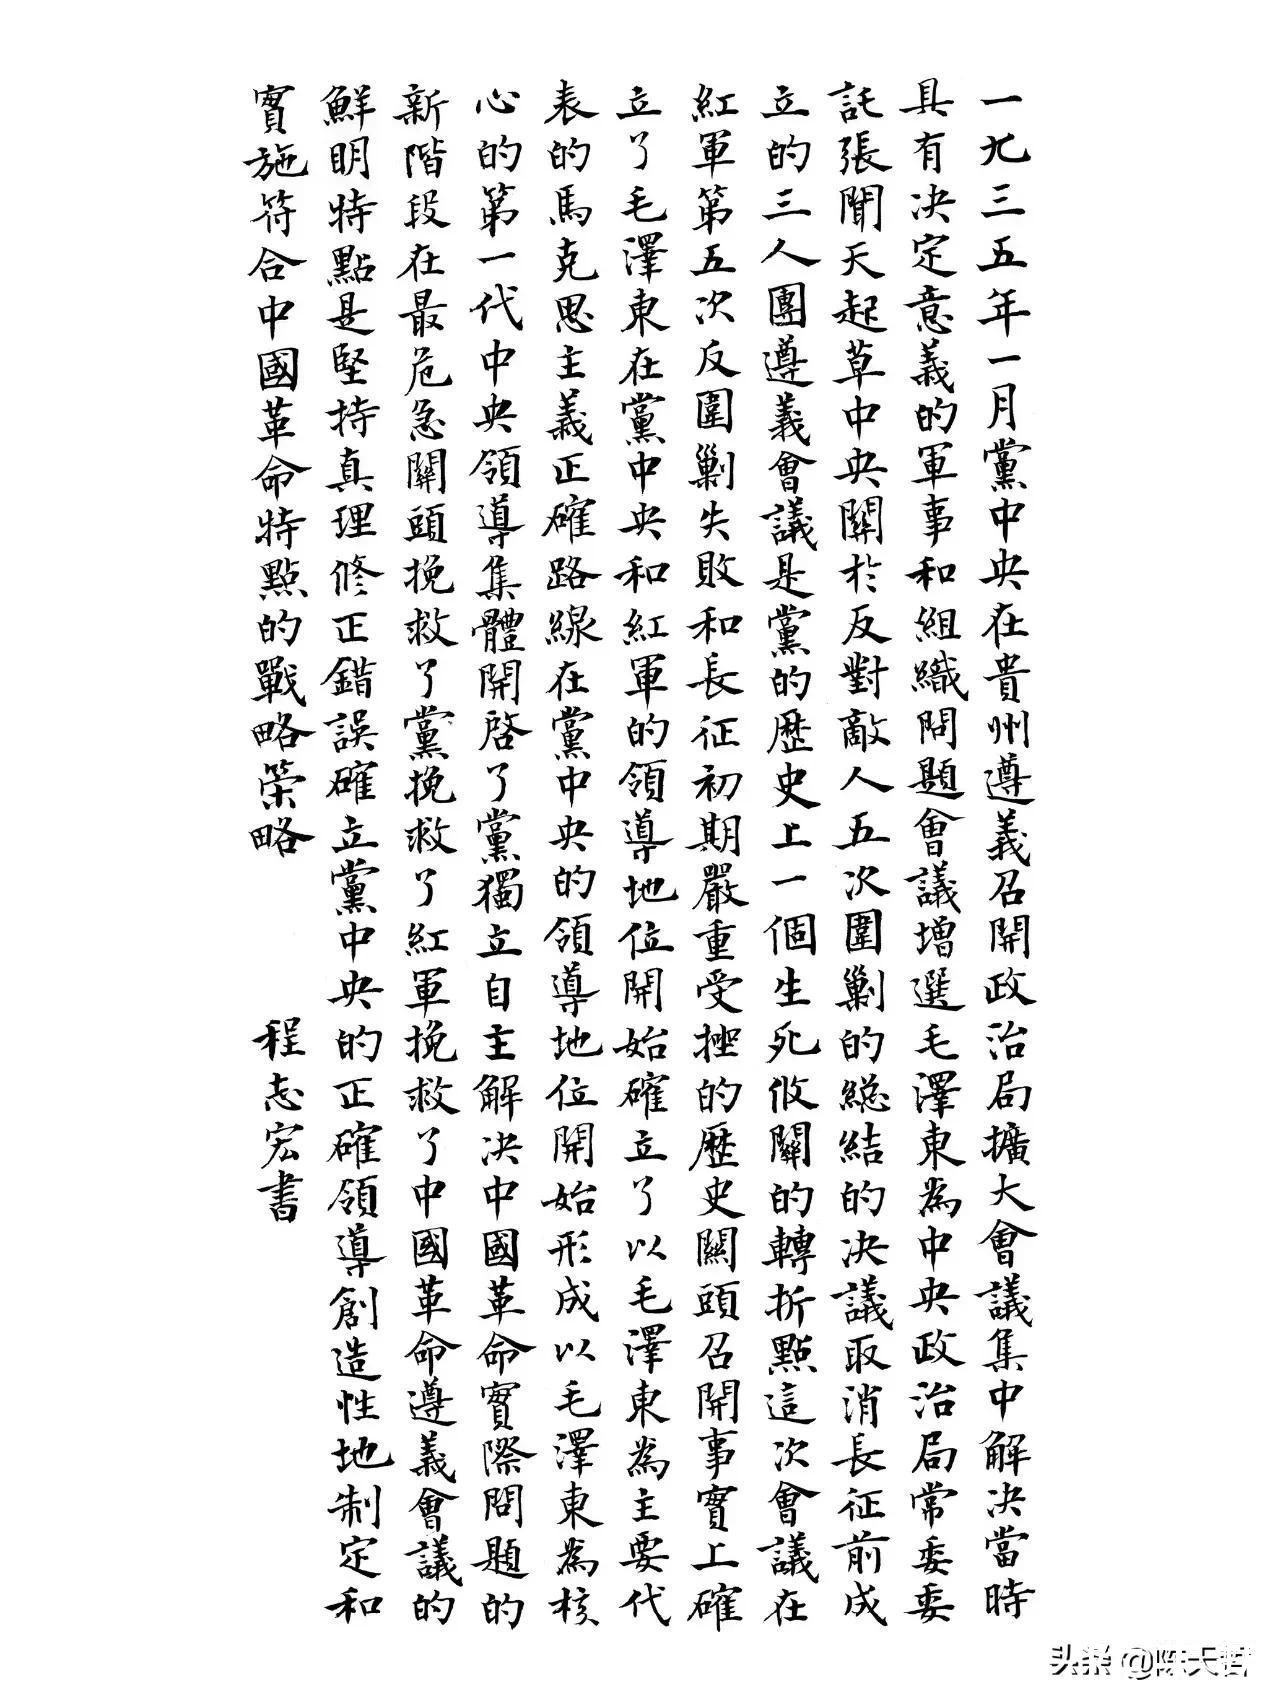 一九三五年一月黨中央在貴州遵義召開政治局擴大會議集中解決當時
具有決定意義的軍事和組織問題會議增選毛澤東為中央政治局常委委
託張聞天起草中央關於反對敵人五次圍剿的總結的決議取消長征前成
立的三人團遵義會議是黨的歷史上一個生死攸關的轉折點這次會議在
紅軍第五次反圍剿失敗和長征初期嚴重受挫的歷史關頭召開事實上確
立了毛澤東在黨中央和紅軍的領導地位開始確立了以毛澤東為主要代
表的馬克思主義正確路線在黨中央的領導地位開始形成以毛澤東為核
心的第一代中央領導集體開啓了黨獨立自主解決中國革命實際問題的
新階段在最危急關頭挽救了黨挽救了紅軍挽救了中國革命遵義會議的
鮮明特點是堅持真理修正錯誤確立黨中央的正確領導創造性地制定和
實施符合中國革命特點的戰略策略
程志宏書
头条 @陈天哲